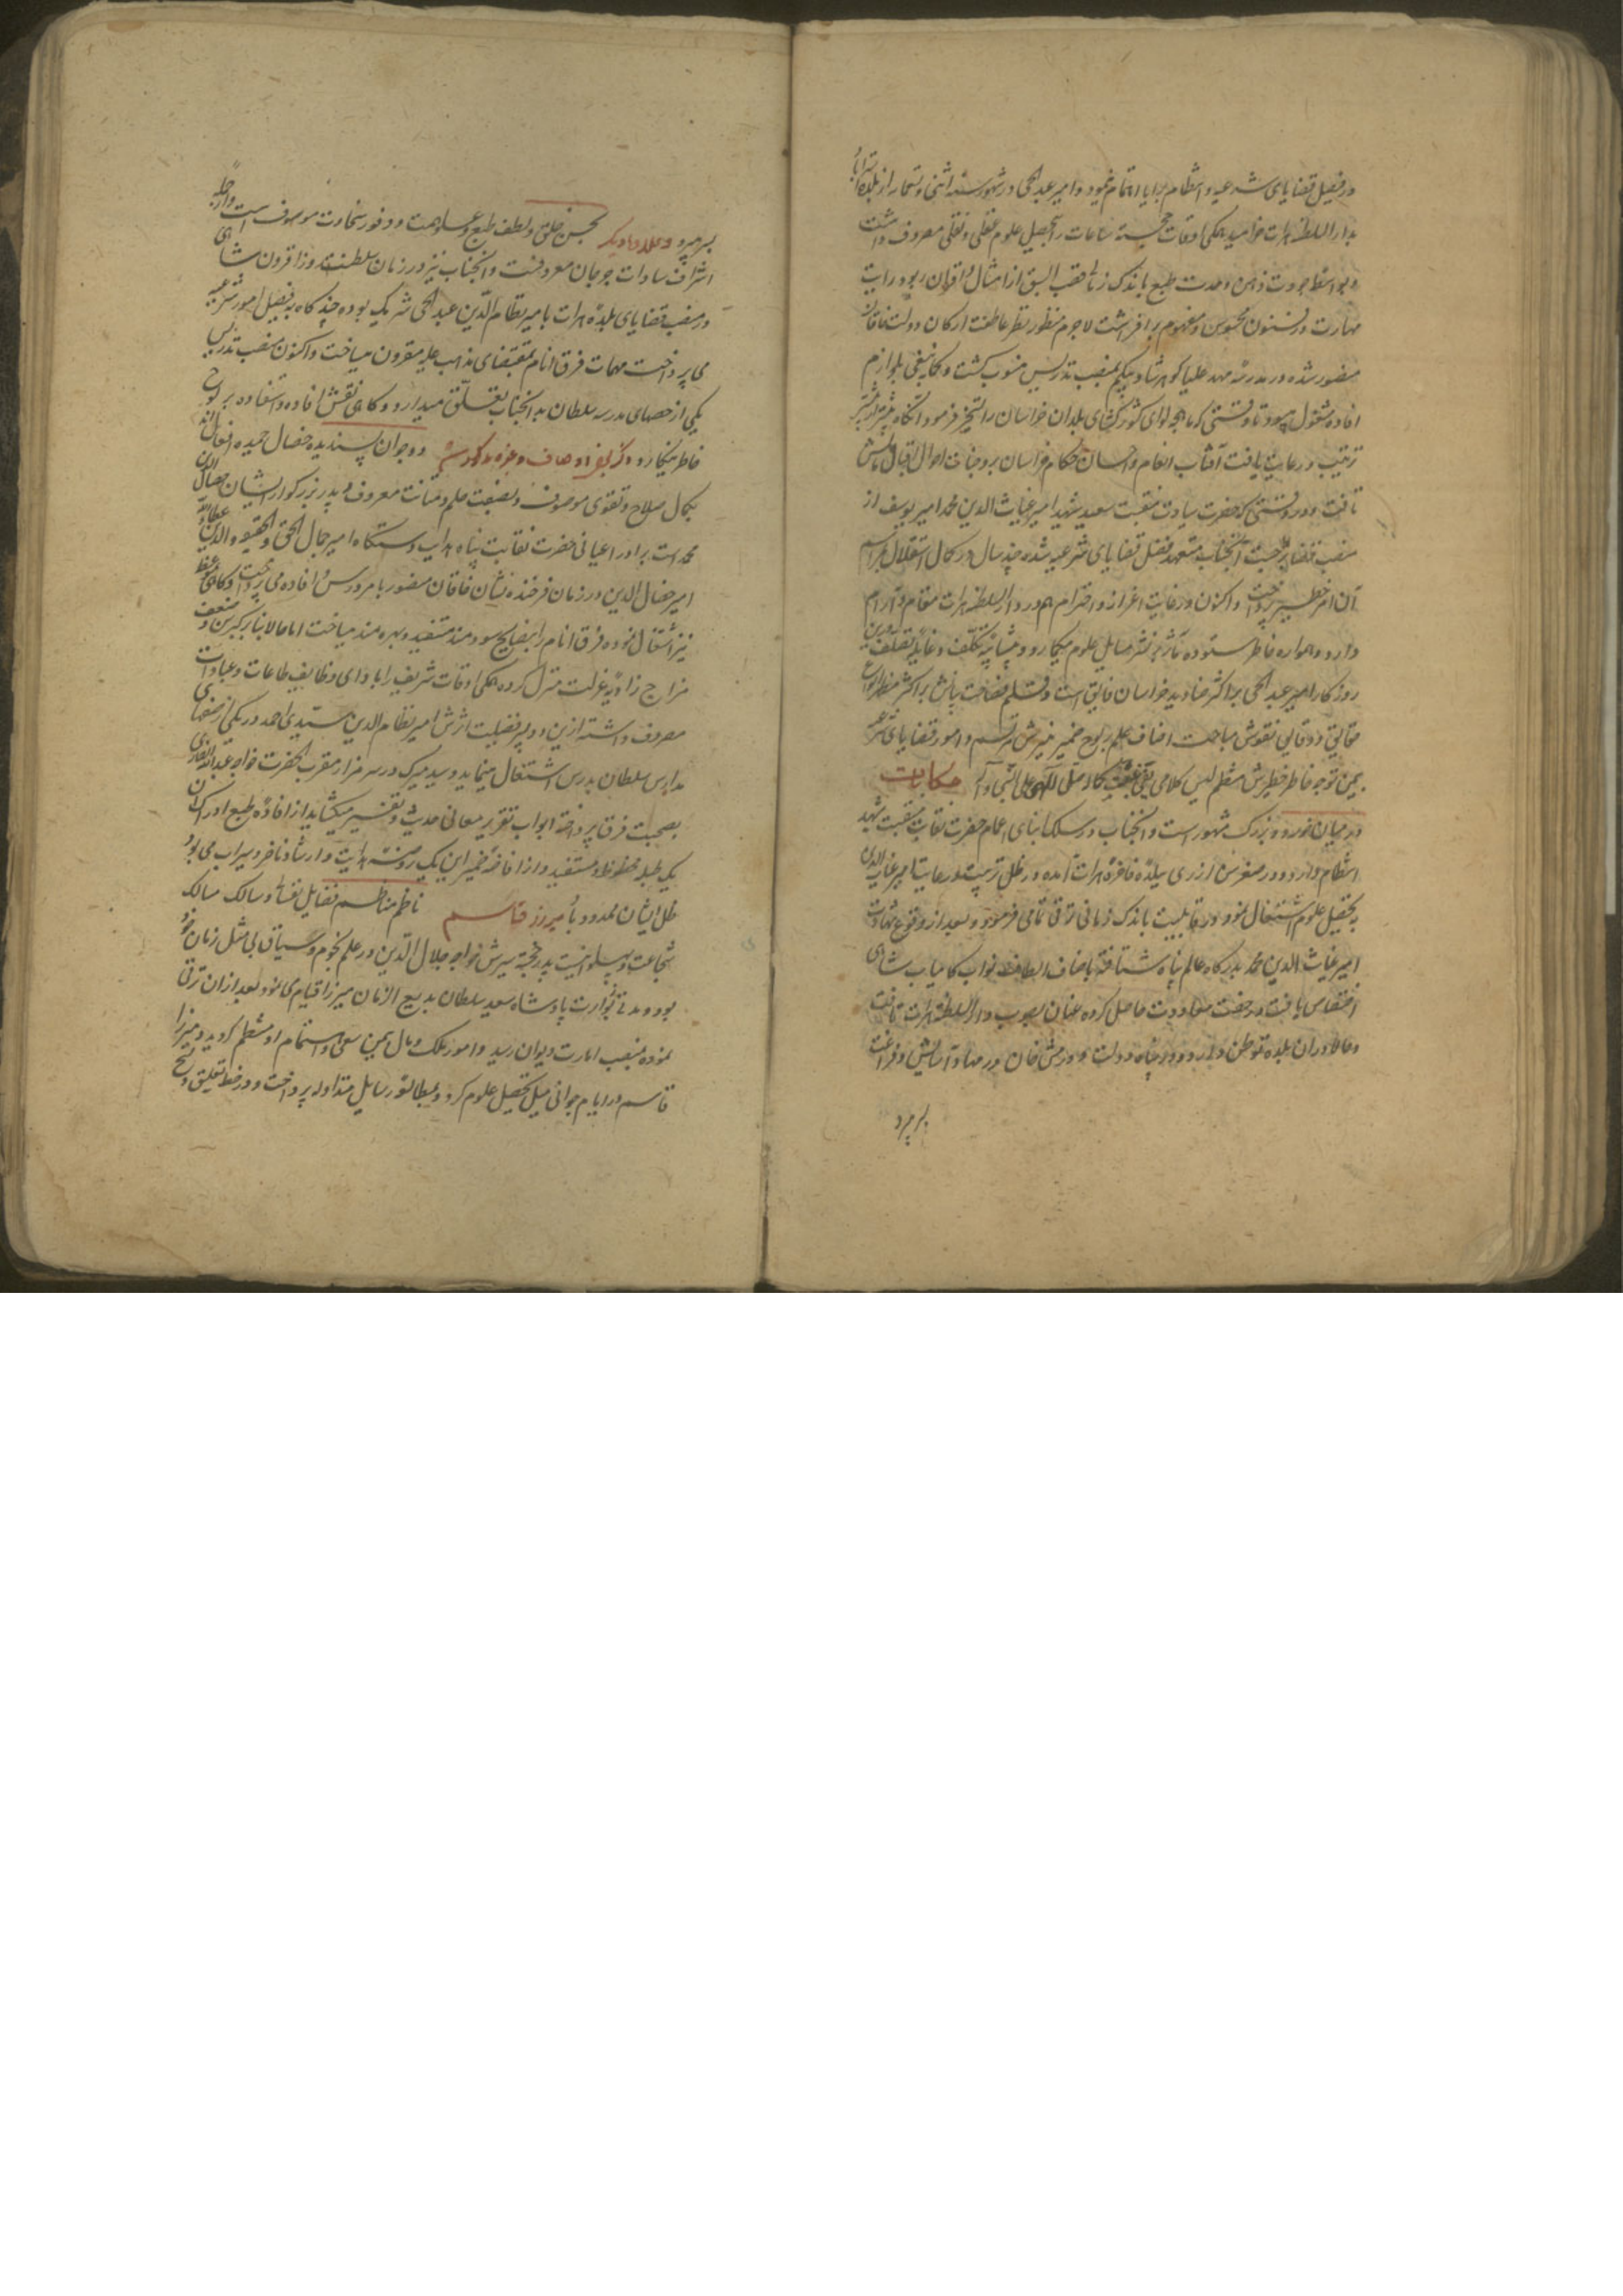 در فیصل قضایای شرعیه و انتظام برایا اهتمام نمود و امیر عبدالحی در شهور سنه اثنی و تسعمایه از بلده استراباد
بدار السلطنه هرات خرامید همگی اوقات خجسته ساعات را بتحصیل علوم عقلی و نقلی مصروف داشت
و بواسطه جودت ذهن و حدت طبع باندک زمانی قصب السبق از امثال و اقران ربود و رایت
مهارت در فنون محسوس و مفهوم برافراشت لاجرم منظور نظر عاطفت ارکان دولت خاقان
منصور شده در مدرسه مهد علیا گوهرشاد بیگم بمنصب تدریس منسوب گشت و کما ینبغی بلوازم
افاده مشغول میبود تا وقتی که ماهچه لوای کشورگشای بلدان خراسان را تسخیر فرمود آنگاه بیشتر از پیشتر
تربیت و رعایت یافت آفتاب انعام و احسان حکام خراسان بر وجنات احوال اقبال مآلش
تافت و در وقتی که حضرت سیادت منقبت سعید شهید امیر غیاث الدین محمد امیر یوسف از
منصب قضا آنجناب متعهد فیصل قضایای شرعیه شده چند سال در کمال استقلال بمراسم
آن امر خطیر پرداخت و اکنون در غایت اعزاز و احترام هم در دار السلطنه هرات مقام و آرام
دارد و همواره خاطر ستوده مآثر بر نشر مسایل علوم میگمارد و بی شایبه تکلف و غایله تصلف درین
روزگار امیر عبدالحی بر اکثر صنادید خراسان فایق است و قلم فصاحت بیانش بر اکثر
حقایق و دقایق نقوش مباحث اصناف علم بر لوح ضمیر منیرش مرتسم و امور قضایای شرعیه
بیمن توجه خاطر خطیرش منتظم صلی الله علی النبی و آله
در میان خورد و بزرگ مشهور است و آنجناب در سلک ابنای اعمام حضرت نقابت منقبت شهید
انتظام دارد و در صغر سن از ری ببلده فاخره هرات آمده در ظل تربیت و رعایت امیر غیاث الدین
بتحصیل علوم اشتغال نمود و در قابلیت باندک زمانی ترقی تمامی فرمود و بعد از وقوع شهادت
امیر غیاث الدین محمد بدرگاه عالم پناه شتافته باصناف الطاف نواب کامیاب شاهی
اختصاص یافت و رخصت معاودت حاصل کرده عنان بصوب دار السلطنه هرات تافت
و حالا در آن بلده توطن دارد و در پناه دولت دورمش خان در مهاد آسایش و فراغت
بسر میبرد
بسر میبرد بحسن خلق و لطف طبع و علو همت و وفور سخاوت موصوف است و از جمله
اشراف سادات جرجان معروفست و آنجناب نیز در زمان سلطنت روز افزون شاهی
در منصب قضایای بلده هرات با میر نظام الدین عبدالحی شریک بوده چند گاه بفیصل امور شرعیه
می پرداخت مهمات فرق انام بمقتضای مذاهب علیه مقرون میساخت و اکنون منصب تدریس
یکی از صفهای مدرسه سلطان بدانجناب تعلق میدارد و گاهی نقش افاده و استفاده بر لوح
خاطر مینگارد دو جوان پسندیده خصال حمیده افعال اند
بکمال صلاح و تقوی موصوف و بصفت حلم و متانت معروف و پدر بزرگوار ایشان جمال الدین
محمد است برادر اعیانی حضرت نقابت پناه هدایت دستگاه امیر جمال الحق و الحقیقه والدین عطاء الله
امیر جمال الدین در زمان فرخنده نشان خاقان منصور بامر درس و افاده می پرداخت و گاهی بوعظ
نیز اشتغال نموده فرق انام را بنصایح سودمند مستفید و بهره مند میساخت اما حالا بنابر کبر سن و ضعف
مزاج زاویه عزلت منزل کرده همگی اوقات شریف را بادای وظایف طاعات و عبادات
مصروف داشته ازین دو پسر فضیلت اثرش امیر نظام الدین سیدی احمد در یکی از صفهای
مدارس سلطان بدرس اشتغال مینماید و سید میرک در سر مزار مقرب الحضرت خواجه عبدالله انصاری
بصحبت فرق پرداخته ابواب تقریر معانی حدیث و تفسیر میگشاید از افاده طبع ادراک آن
یک طلبه محظوظ و مستفید و از افاضه ضمیر این یک روضه هدایت و ارشاد ناضر و سیراب می بود
ظل ایشان ممدود باد میرزا قاسم ناظم مناظم فضایل نفسانی و سالک مسالک
شجاعت و پهلوانیست پدر خجسته سیرش خواجه جلال الدین در علم نجوم و سیاق بی مثل زمان خود
بود و مدتی بوزارت پادشاه سعید سلطان بدیع الزمان میرزا قیام می نمود و بعد از آن ترقی
نموده بمنصب امارت دیوان رسید و امور ملک و مال بیمن سعی و اهتمام او منتظم گردید و میرزا
قاسم در ایام جوانی میل تحصیل علوم کرد و بمطالعه رسایل متداوله پرداخت و در خط تعلیق و نسخ